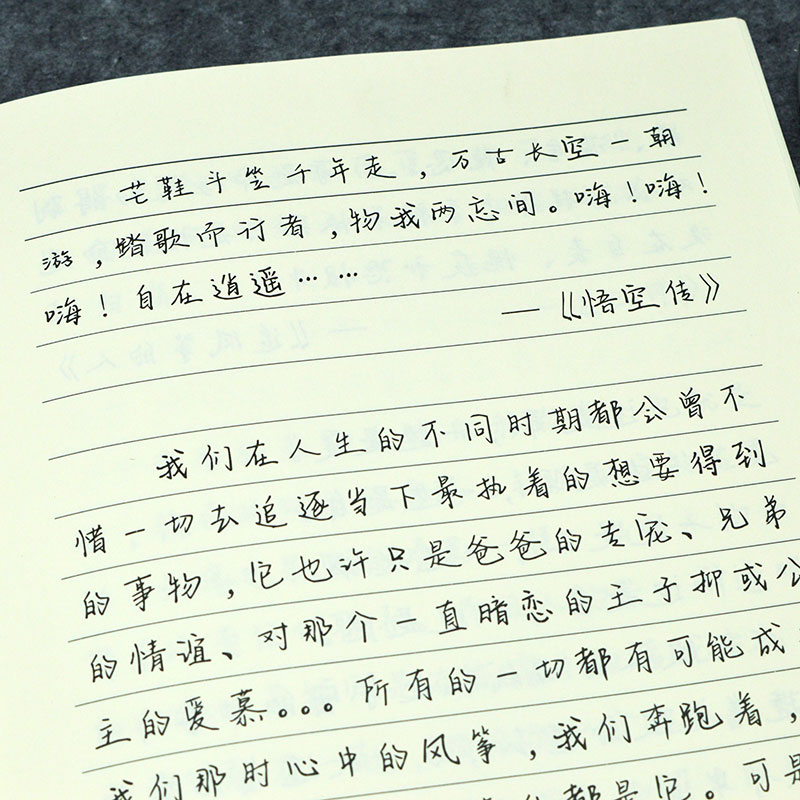 芒鞋斗笠千年走，万古长空一朝
游，踏歌而行者，物我两忘间。嗨！嗨！
嗨！自在逍遥……
—《悟空传》
我们在人生的不同时期都会曾不
惜一切去追逐当下最执着的想要得到
的事物，它也许只是爸爸的专宠、兄弟
的情谊、对那个一直暗恋的王子抑或公
主的爱慕。。。所有的一切都有可能成
我们那时心中的风筝，我们奔跑着，
都是它。可是